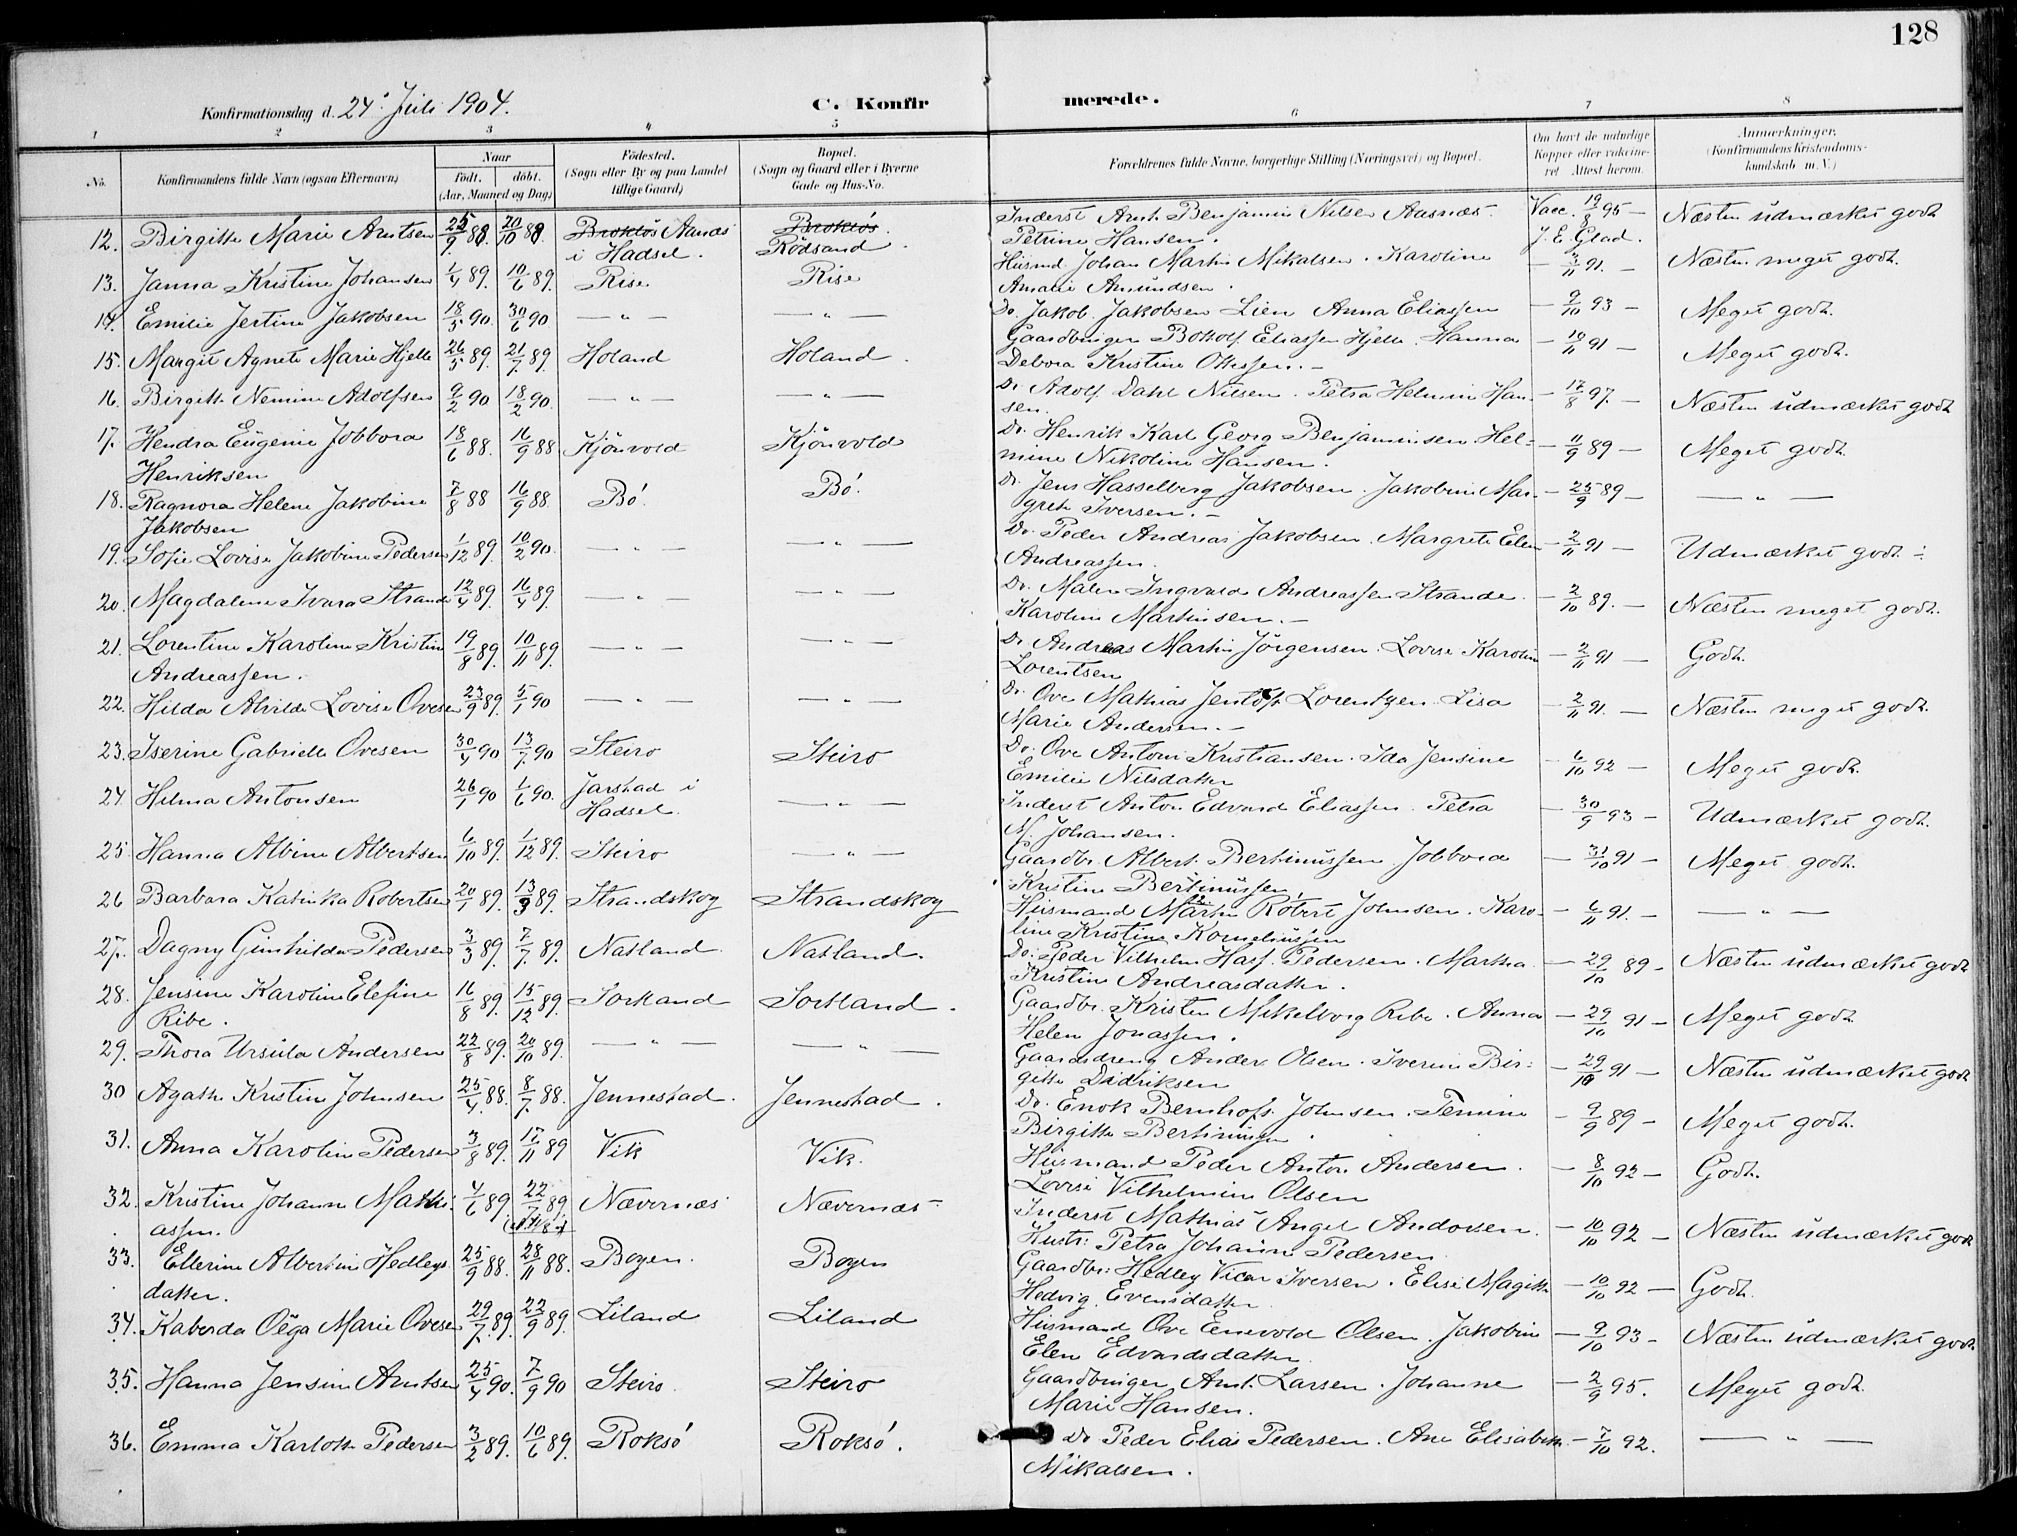 128
Konfirmationsdag d. 24' Juli 1904.
C. Konfirmerede.
1 2 3 4 5 6 7 8
No.
Konfirmandens fulde Navn (ogsaa Efternavn)
Naar
Födt. döbt.
(Aar, Maaned og Dag)
Födested.
(Sogn eller By og paa Landet
tillige Gaard)
Bopæl.
(Sogn og Gaard eller i Byerne
Gade og Hus-No.
Forældrenes fulde Navne, borgerlige Stilling (Næringsvei) og Bopæl.
Om havt de naturlige
Kopper eller vaccine-
ret Attest herom.
Anmærkninger.
(Konfirmandens Kristendoms-
kundskab m. V.)
12. Birgitte Marie Arntsen 25/9 88. 20/10 88 Broklös Aanæs i Hadsel. Broklös. Rödsand Inderst Arnt Benjamin Nilsen Aasnæs. Petrine Hansen. Vacc. 19/8 95 — J. E. Glad. Næsten udmærket godt
13. Janna Kristine Johansen 1/4 89. 10/6 89. Rise Rise Husmd. Johan Martin Mikalsen. Karoline Amalie Amundsen. — 3/11 91. — Næsten meget godt.
14. Emilie Jertine Jakobsen 18/5 90. 30/6 90 — „ — — „ — Do. Jakob Jakobsen Lien Anna Eliassen — 9/10 93 — Meget godt.
15. Margit Agnete Marie Hjelle 26/5 89. 21/7 89. Holand Holand. Gaardbruger Bottolf Eliassen Hjelle. Hanna Debora Kristine Ottessen. — — 10/11 91 — Meget godt.
16. Birgitte Nemine Adolfsen 9/2 90 18/2 90. — „ — — „ — Do. Adolf Dahl Nilsen. Petra Helmine Hansen. — 17/8 97. — Næsten udmærket godt
17. Hendra Eugenie Jobbora Henriksen 18/6 88. 16/9 88 Kjörvold Kjörvold Do. Henrik Karl Georg Benjaminsen Helmine Nikoline Hansen. — 11/9 89 — Meget godt.
18. Ragnora Helene Jakobine Jakobsen 7/8 88 16/9 88. Bö. Bö. Do. Jens Hasselberg Jakobsen. Jakobine Margrete Iversen. — — 25/9 89 — — „ —
19. Sofie Lovise Jakobine Pedersen 1/12 89. 10/2 90. — „ — — „ — Do. Peder Andreas Jakobsen. Margrete Elen Andreassen. — 2/11 91 — Udmærket godt ÷
20. Magdalene Ivara Strande 12/4 89. 16/4 89. — „ — — „ — Do. Malen Ingvald Andreassen Strande. Karoline Martinsen. — — 2/10 89. — Næsten meget godt.
21. Lorentine Karoline Kristine Andreassen. 19/8 89. 10/11 89. — „ — — „ — Do. Andreas Martin Jörgensen. Lovise Karoline Lorentsen — 2/11 91 — Godt.
22. Hilda Alvilde Lovise Ovesen 23/9 89. 5/1 90 — „ — — „ — Do. Ove Mathias Jentoft Lorentzen. Lisa Marie Andersen. — — 2/11 91. — Næsten meget godt.
23. Iserine Gabrielle Ovesen 30/4 90 13/7 90 Steiro Steiro Do. Ove Antoni Kristiansen. Ida Jensine Emilie Nilsdatter — 6/10 92 — Meget godt.
24. Hilma Antonsen 26/1 90 1/6 90. Jarstad i Hadsel. — „ — Inderst Anton Edvard Eliassen. Petra M. Johansen. — 30/9 93 — Udmærket godt.
25. Hanna Albine Albertsen 6/10 89. 1/12 89. Steiro — „ — Gaardbr. Albert Bertinussen. Jobbora Kristine Bertinussen — 31/10 91 — Meget godt.
26 Barbara Katinka Robertsen 20/1 89. 13/3 89. Strandskog Strandskog Husmand Martin Robert Johnsen. Karoline Kristine Korneliussen — 6/11 91. — — „ —
27. Dagny Gunhilda Pedersen 3/3 89. 7/7. 89. Natland Natland. Do. Peder Vilhelm Hass Pedersen. Martha Kristine Andreasdatter. — 29/10 89 — Næsten udmærket godt
28. Jensine Karoline Elefine Ribe. 16/8 89. 15/12 89. Sortland Sortland. Gaardbr. Kristen Mikelborg Ribe. Anna Helen Jonassen. — 29/10 91 — Meget godt.
29. Thora Ursula Andersen 22/8 89. 20/10 89. — „ — — „ — Gaardsdreng Anders Olsen. Iverine Birgitte Didriksen — 29/10 91 — Næsten udmærket godt
30 Agathe Kristine Johnsen 25/4 88. 8/7. 88. Jennestad. Jennestad. Do. Enok Bernhoft Johnsen. Temine Birgitte Bertinussen — 9/9 89 — Meget godt.
31. Anna Karoline Pedersen 3/8 89. 17/11 89 Vik Vik. Husmand Peder Anton Andersen. Lovise Vilhelmine Olsen — 8/10 92 — Godt.
32. Kristine Johanne Mathiassen. 4/6 89. 22/7 89. Nævernæs Nævernæs Inderst Mathias Angel Andorsen. Hustr: Petra Johanne Pedersen — 10/10 92 — Næsten udmærket godt
33. Ellerine Albertine Hedleysdatter. 25/9 88. 28/11 88. Bogen. Bogen Gaardbr: Hedley Vicar Iversen. Elise Magitte Hedvig Evensdatter — 10/10 92 — Godt.
34. Kaberda Olga Marie Ovesen 29/7. 89. 22/9 89. Liland Liland Husmand Ove Enevold Olsen. Jakobine Elen Edvardsdatter — 9/10 93 — Næsten udmærket godt.
35. Hanna Jensine Arntsen 25/4 90. 7/9 90 Steiro. Steiro Gaardbruger Arnt Larsen. Johanne Marie Hansen. — 2/9 95. Meget godt.
36. Emma Karlotte Pedersen 3/2 89. 10/6 89. Roksö Roksö. Do Peder Elias Pedersen. Ane Elisabeth Mikalsen. — 7/10 92. — „ —